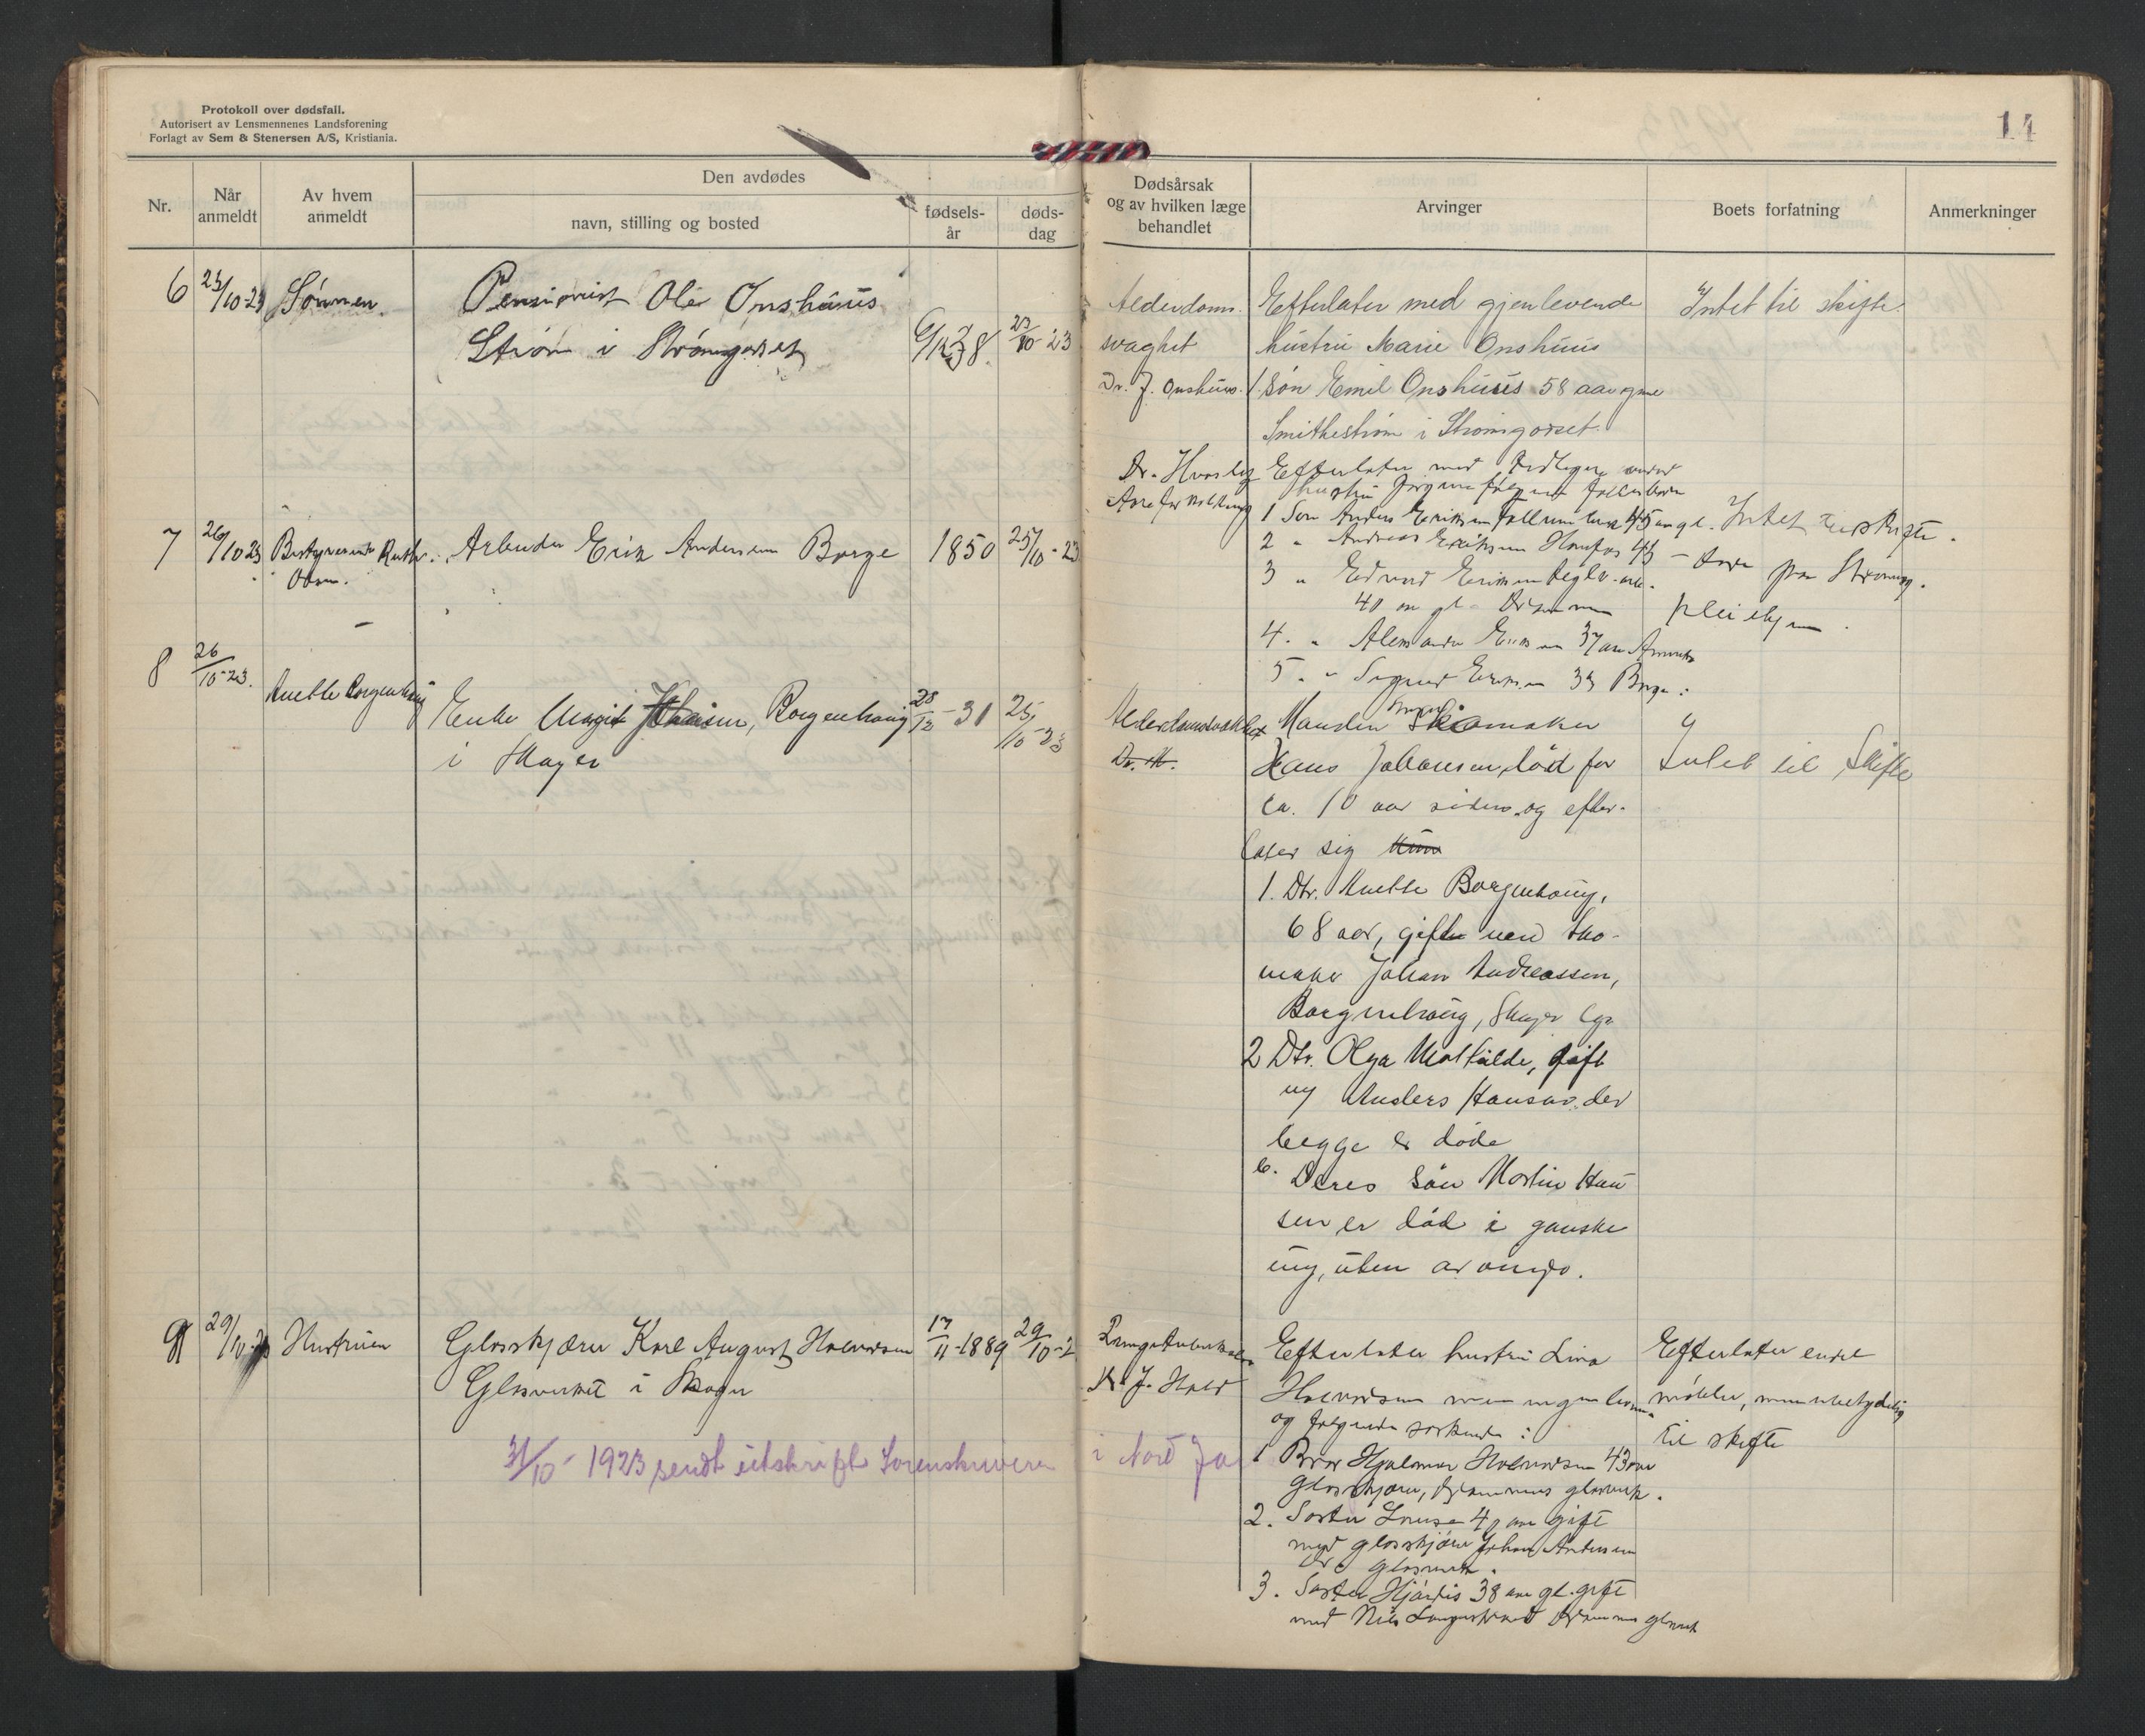 Protokoll over dødsfall.
Autorisert av Lensmennenes Landsforening
Forlagt av Sem & Stenersen A/S, Kristiania.
14
Nr.
Når
anmeldt
Av hvem
anmeldt
Den avdødes
navn, stilling og bosted
fødsels-
år
døds-
dag
Dødsårsak
og av hvilken læge
behandlet
Arvinger
Boets forfatning
Anmerkninger
6
/10-23
Sønnen
Pensionist Ole Onshuus
Strøm i Strømgodset
23/10-23
Alderdoms.
svaghet
Dr. J. Onshuus.
Efterlater med gjenlevende
hustru Marie Onshuus
1. Søn Emil Onshuus 58 aar gml
Smithestrøm i Strømsgodset.
Intet til skifte.
7
26/10 23
Bestyrerinde Ruth
Arbeider Erik Andersen Borge
1850
25/10-23
Dr.
Efterlater med
hustru Jørgine følgende fælles børn
1 Søn Anders Eriksen 45 aar gl.
2 " Andreas Eriksen Hønefos 43
3 " Edvard Eriksen
40 aar gl. Drammen
4. " Eriksen 37 aar Amerika
5. " Sigurd Eriksen 33 Borge.
Intet til skifte.
pleiehjem.
8
26/10-23.
Anette Borgenhaug
Enke Margit Johansen, Borgenhaug
i Skoger
28/12-31
25/10-23
Alderdomssvakhet
Dr. M.
Manden Skomaker
Hans Johansen død for
ca. 10 aar siden og efter-
later sig
1. Dtr. Anette Borgenhaug,
68 aar, gift med Sko-
maker Johan Andreassen,
Borgenhaug, Skoger
2 Dtr. Olga Mathilde, gift
m Anders Hansen der
begge er døde
Deres søn Martin Han
sen er død i ganske
ung, uten arvinger.
Intet til Skifte
9
29/10-23
Hustruen
Glasskjærer Karl August Halvorsen
Glasverket i Skoger
17/11-1889
29/10-2
Lungetuberkulose
Dr J. Hald
Efterlater hustru Lina
Halvorsen men ingen barn
og følgende søskende :
1 Bror Hjalmar Halvorsen 43 aar
glasskjærer, Drammens glasverk.
2. Søster Louise 40 aar gift
med glasskjærer Johan Andersen
Dr glasverk.
3. Søster Hjørdis 38 aar gl. gift
med Nils Langestrand Drammens glasverk
Efterlater endel
møbler, men ubetydelig
til skifte
31/10 - 1923 sendt utskrift Sorenskriveren
i Nord Ja